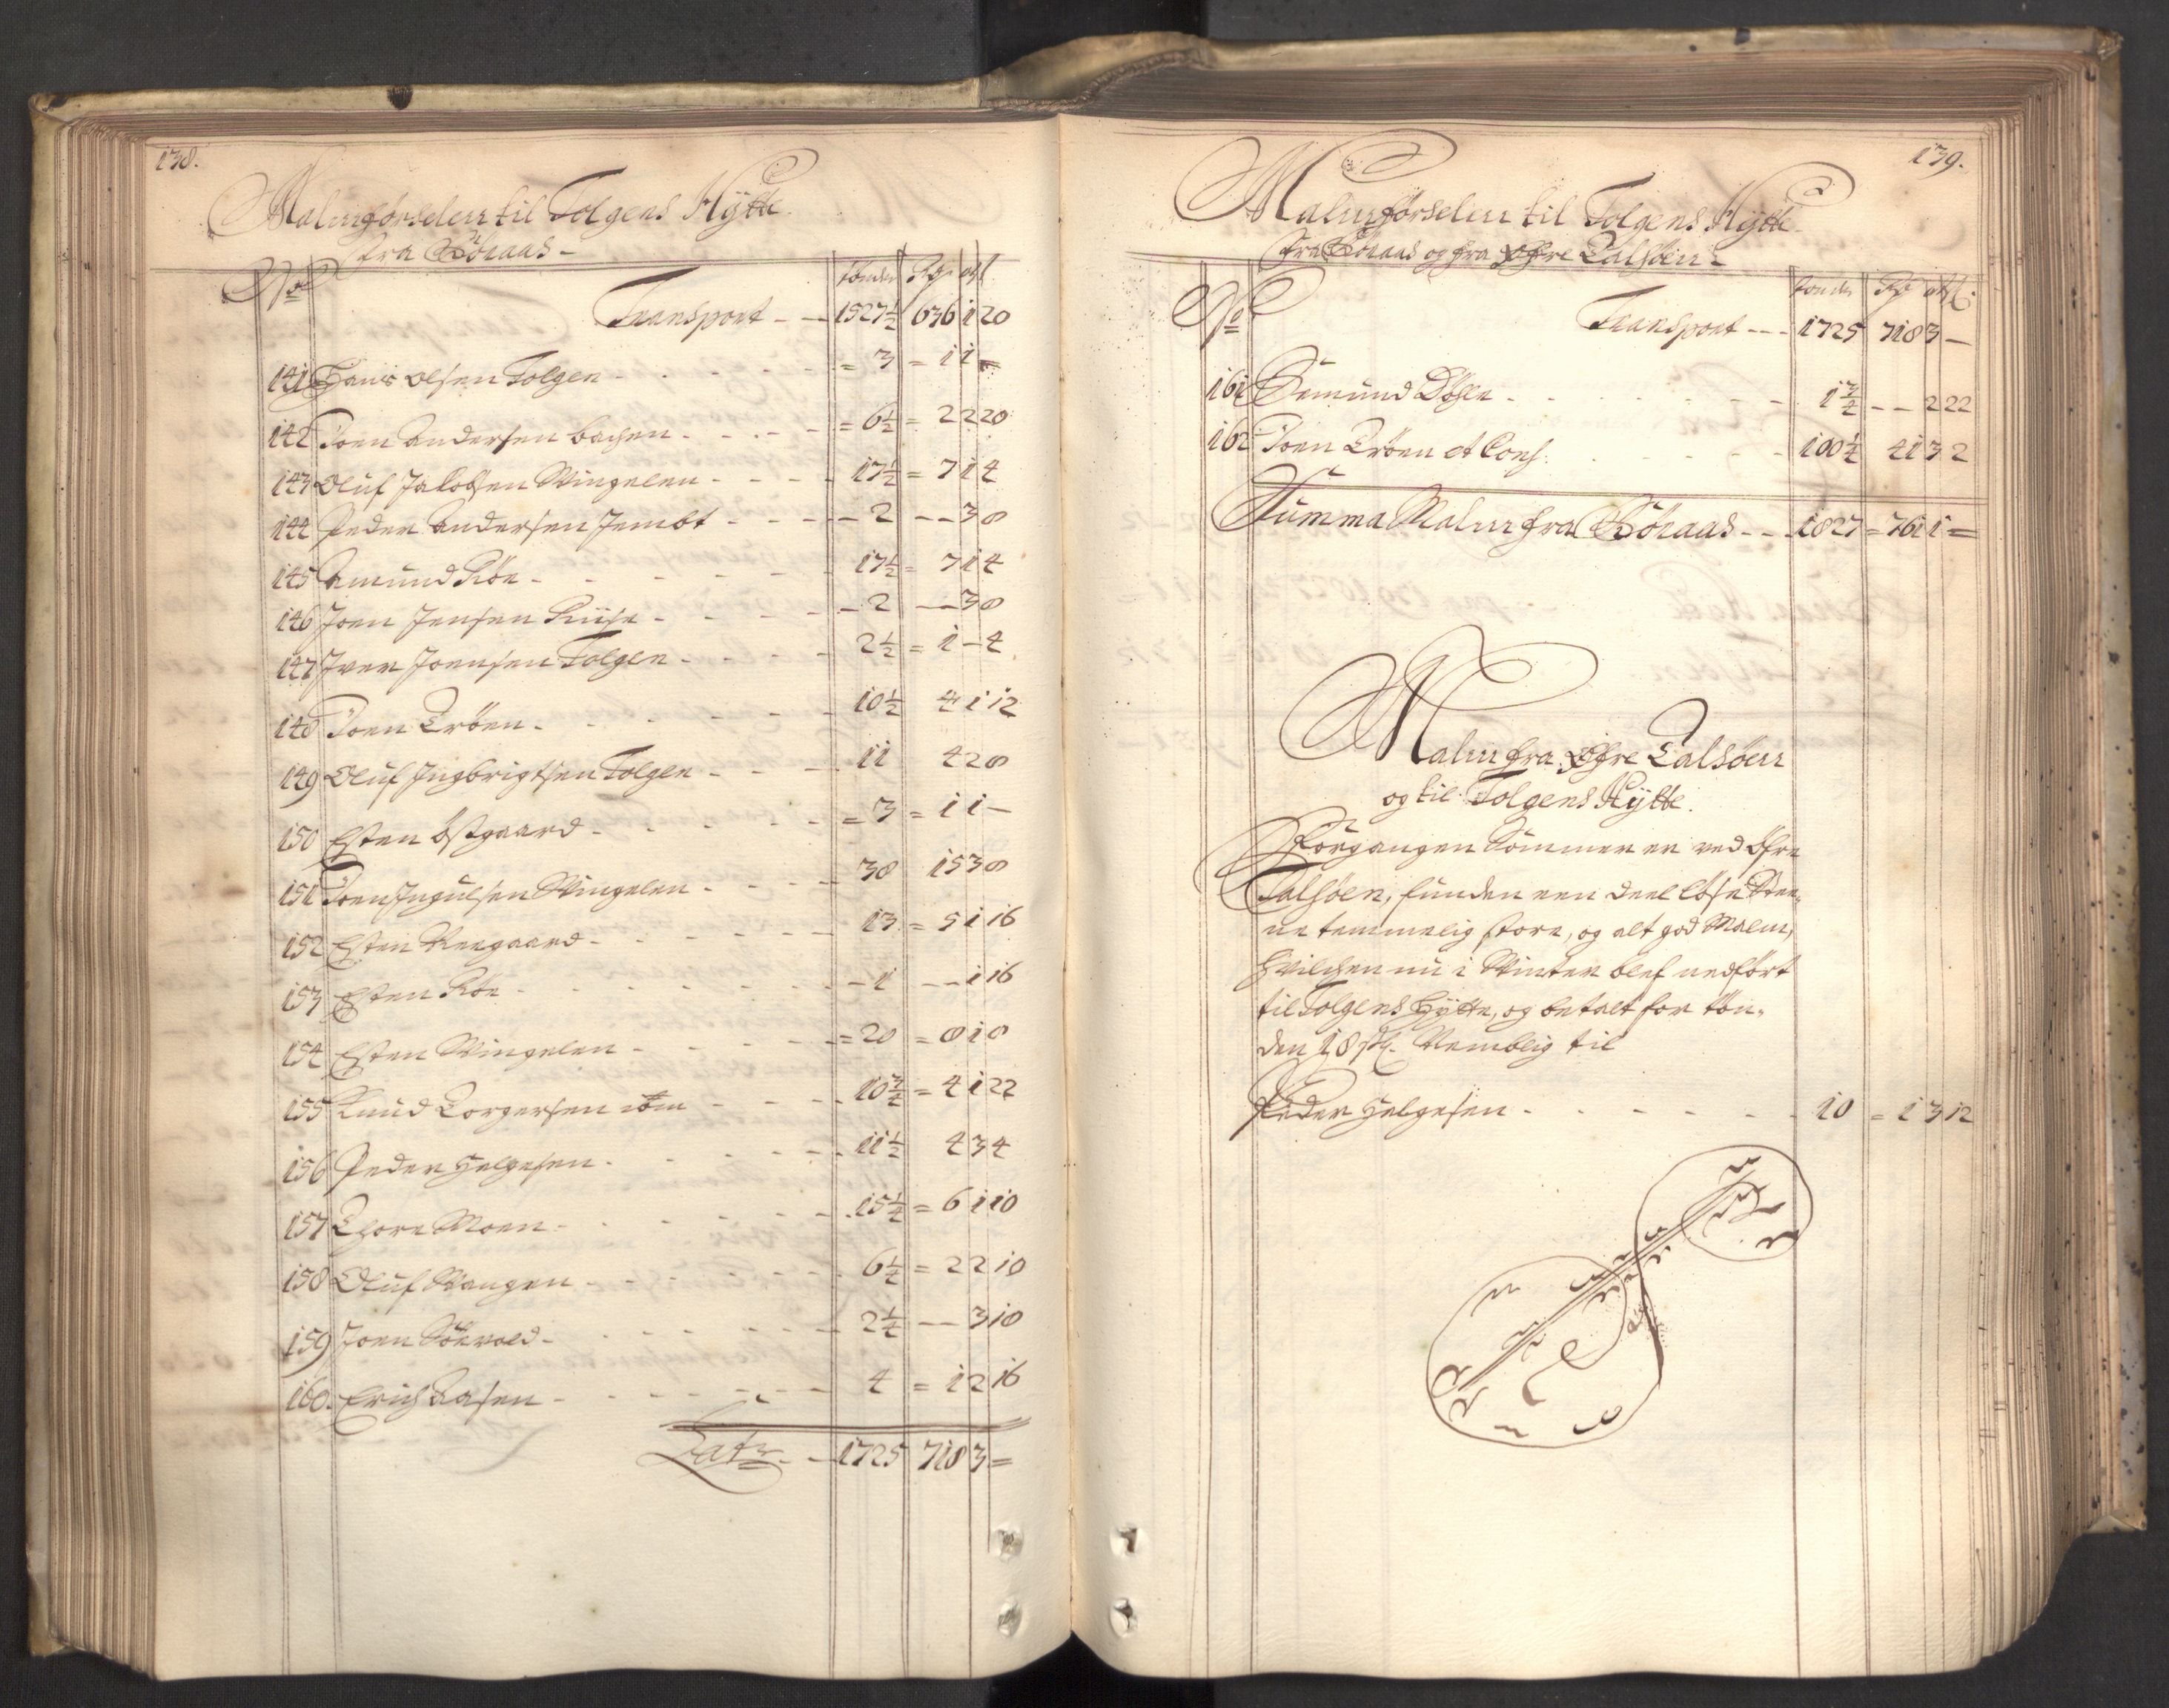 138.
Malmførselen til Tolgens Hÿtte
fra Röraas
No
tönder Rdr ort ſl
Transport - - 1527½ 636 1 20
141 Hans Olsen Tolgen - - = 3 = 1 1 =
142 Joen Andersen bachen - - = 6½ = 2 2 20
143 Oluf Jacobsen Wingelen - - 17½ = 7 1 4
144 Peder Andersen Jembt - - - 2 - - 3 8
145 Amund Röe - - 17½ = 7 1 4
146 Joen Jensen - - 2 - - 3 8
147 Iver Joensen Tolgen - - 2½ = 1 - 4
148 Joen Tröen - - 10½ 4 1 12
149 Oluf Ingbrigtsen Tolgen - - 11 4 2 8
150 Esten Östgaard - - = 3 = 1 1 -
151 Joen Ingulsen Wingelen - - 38 15 3 8
152 Esten Neegaard - - 13 = 5 1 16
153 Esten Röe - - 1 - - 1 16
154 Esten Wingelen - - = 20 = 8 1 8
155 Knud Torgersen - - 10¾ = 4 1 22
156 Peder Helgesen - - 11½ 4 3 4
157 Thore Moen - - 15¼ = 6 1 10
158 Oluf Vangen - - 6¼ = 2 2 10
159 Joen Söevold - - 2¼ - - 3 18
160. Erich Aasen - - 4 = 1 2 16
Latr - - 1725 718 3 =
139.
Malmførselen til Tolgens Hÿtte
fra Röraas og fra øfre Talsöen
No
tönder Rdr ort ſl
Transport - - - 1725 718 3 -
161 Semund - - 1¾ - - 2 22
162 Joen Tröen et Cons: - - 100¼ 41 3 2
Summa Malm fra Röraas - - 1827 = 761 1 =
Malm fra øfre Talsöen
og til Tolgens Hÿtte.
Forgangen Sommer er ved Øfre
Talsöen, funden een deel löse Stee-
ne temmelig store, og alt god Malm,
hvilchen nu i Winter blef nedført
til Tolgens Hÿtte, og betalt for tön-
den 18 ſl. Nemblig til
Peder Helgesen - - 10 = 1 3 12